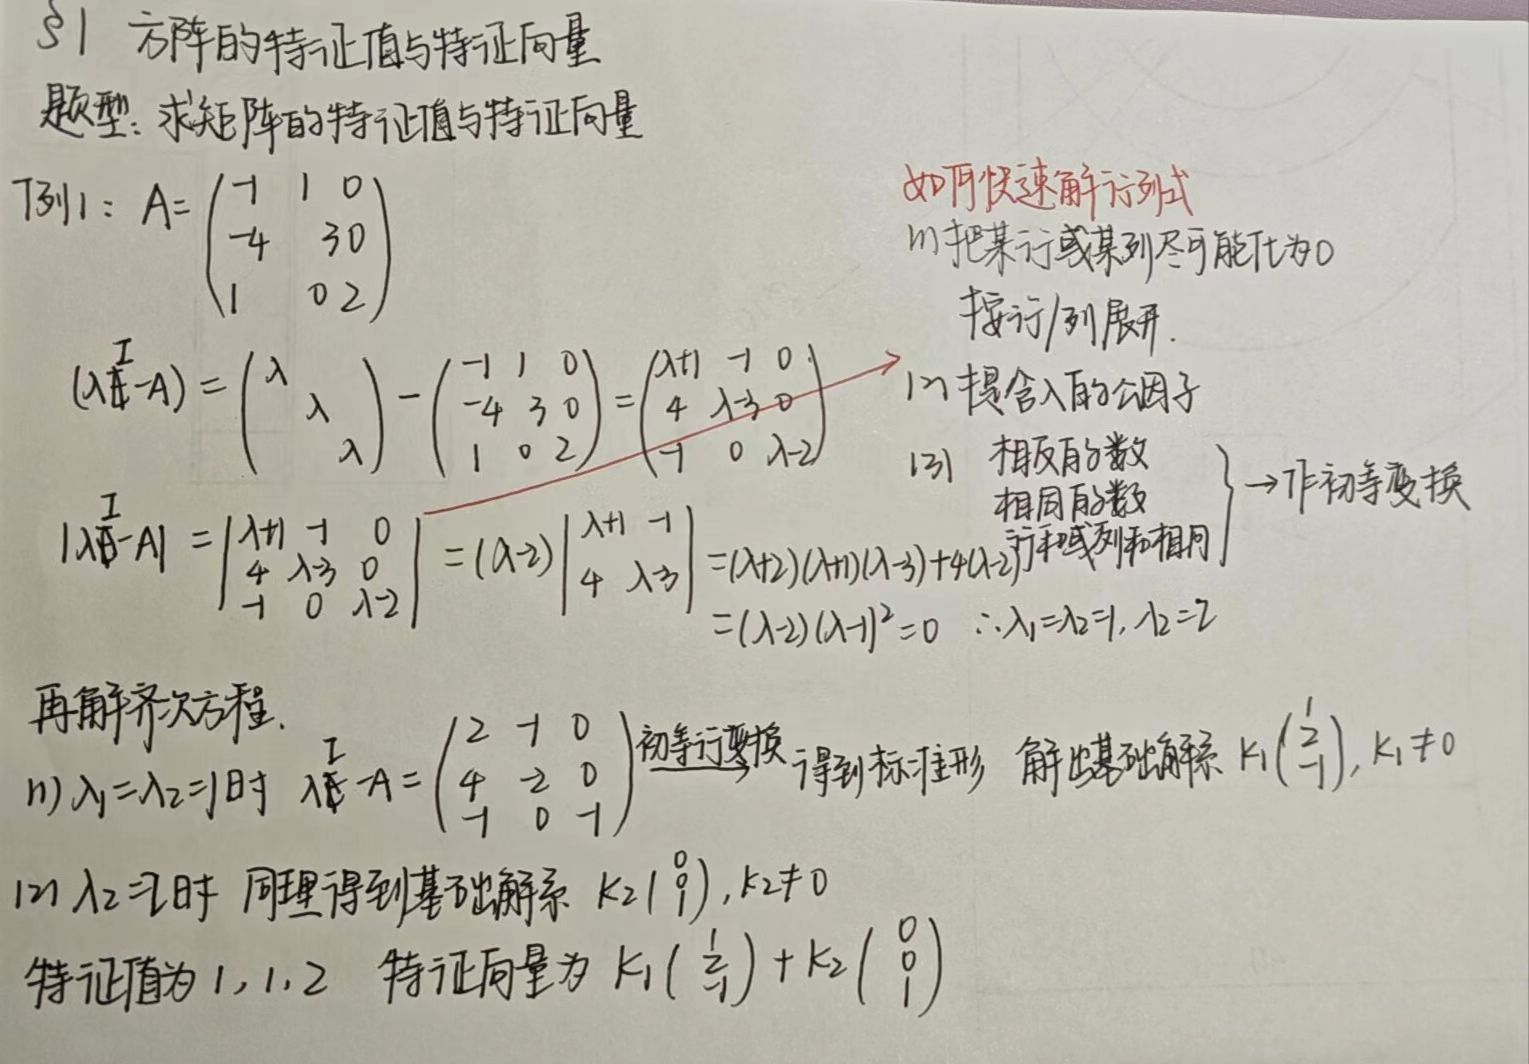 §1 方阵的特征值与特征向量
题型: 求矩阵的特征值与特征向量
例1: A= (-1 1 0
-4 3 0
1 0 2)
(λI-A) = (λ
λ
λ) - (-1 1 0
-4 3 0
1 0 2) = (λ+1 -1 0
4 λ-3 0
-1 0 λ-2)
|λI-A| = |λ+1 -1 0
4 λ-3 0
-1 0 λ-2| = (λ-2) |λ+1 -1
4 λ-3| = (λ+2)(λ+1)(λ-3)+4(λ-2)
= (λ-2)(λ-1)²=0 ∴λ1=λ2=1, λ2=2
如何快速解行列式
(1) 把某行或某列尽可能化为0
按行/列展开.
(2) 提含λ的公因子
(3) 相反的数
相同的数
行和或列和相同
→作初等变换
再解齐次方程.
(1) λ1=λ2=1时 λI-A= (2 -1 0
4 -2 0
-1 0 -1) 初等行变换→ 得到标准形 解出基础解系 K1(1
2
-1), K1≠0
(2) λ2=2时 同理得到基础解系 K2(0
0
1), K2≠0
特征值为1,1,2 特征向量为 K1(1
2
-1) + K2(0
0
1)